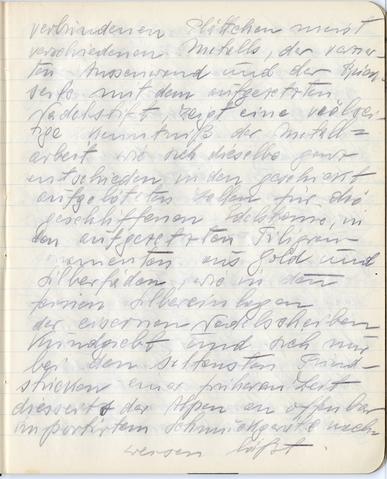 verbundenen Plättchen meist
verschiedenen Metalls, der
ten Aussenwand und der
seite mit dem aufgesetzten
Nadelstift, zeigt eine vielsei-
tige Kenntniß der Metall=
arbeit wie sich dieselbe ganz
entschieden in den geschickt
aufgelöteten Zellen für die
geschliffenen Edelsteine, in
den aufgesetzten Filigran-
ornamenten aus Gold und
Silberfäden, wie in den
feinen Silbereinlagen
der eisernen Nadelscheiben
kundgebt und sich nur
bei den seltensten Fund-
stücken einer früheren Zeit
diesseits der Alpen an offenbar
importirtem Schmuckgeräte nach-
weisen läßt.